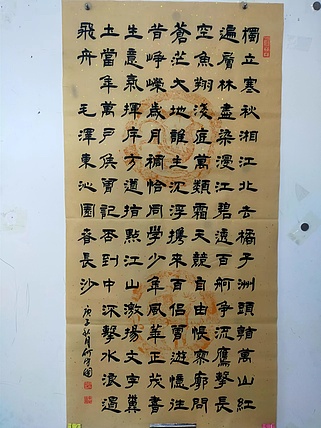 獨立寒秋湘江北去橘子洲頭看萬山紅
遍層林盡染漫江碧透百舸爭流鷹擊長
空魚翔淺底萬類霜天競自由悵寥廓問
蒼茫大地誰主沉浮攜來百侶曾遊憶往
昔崢嶸歲月稠恰同學少年風華正茂書
生意氣揮斥方遒指點江山激揚文字糞
土當年萬戶侯曾記否到中流擊水浪遏
飛舟 毛澤東沁園春長沙
庚子秋月何